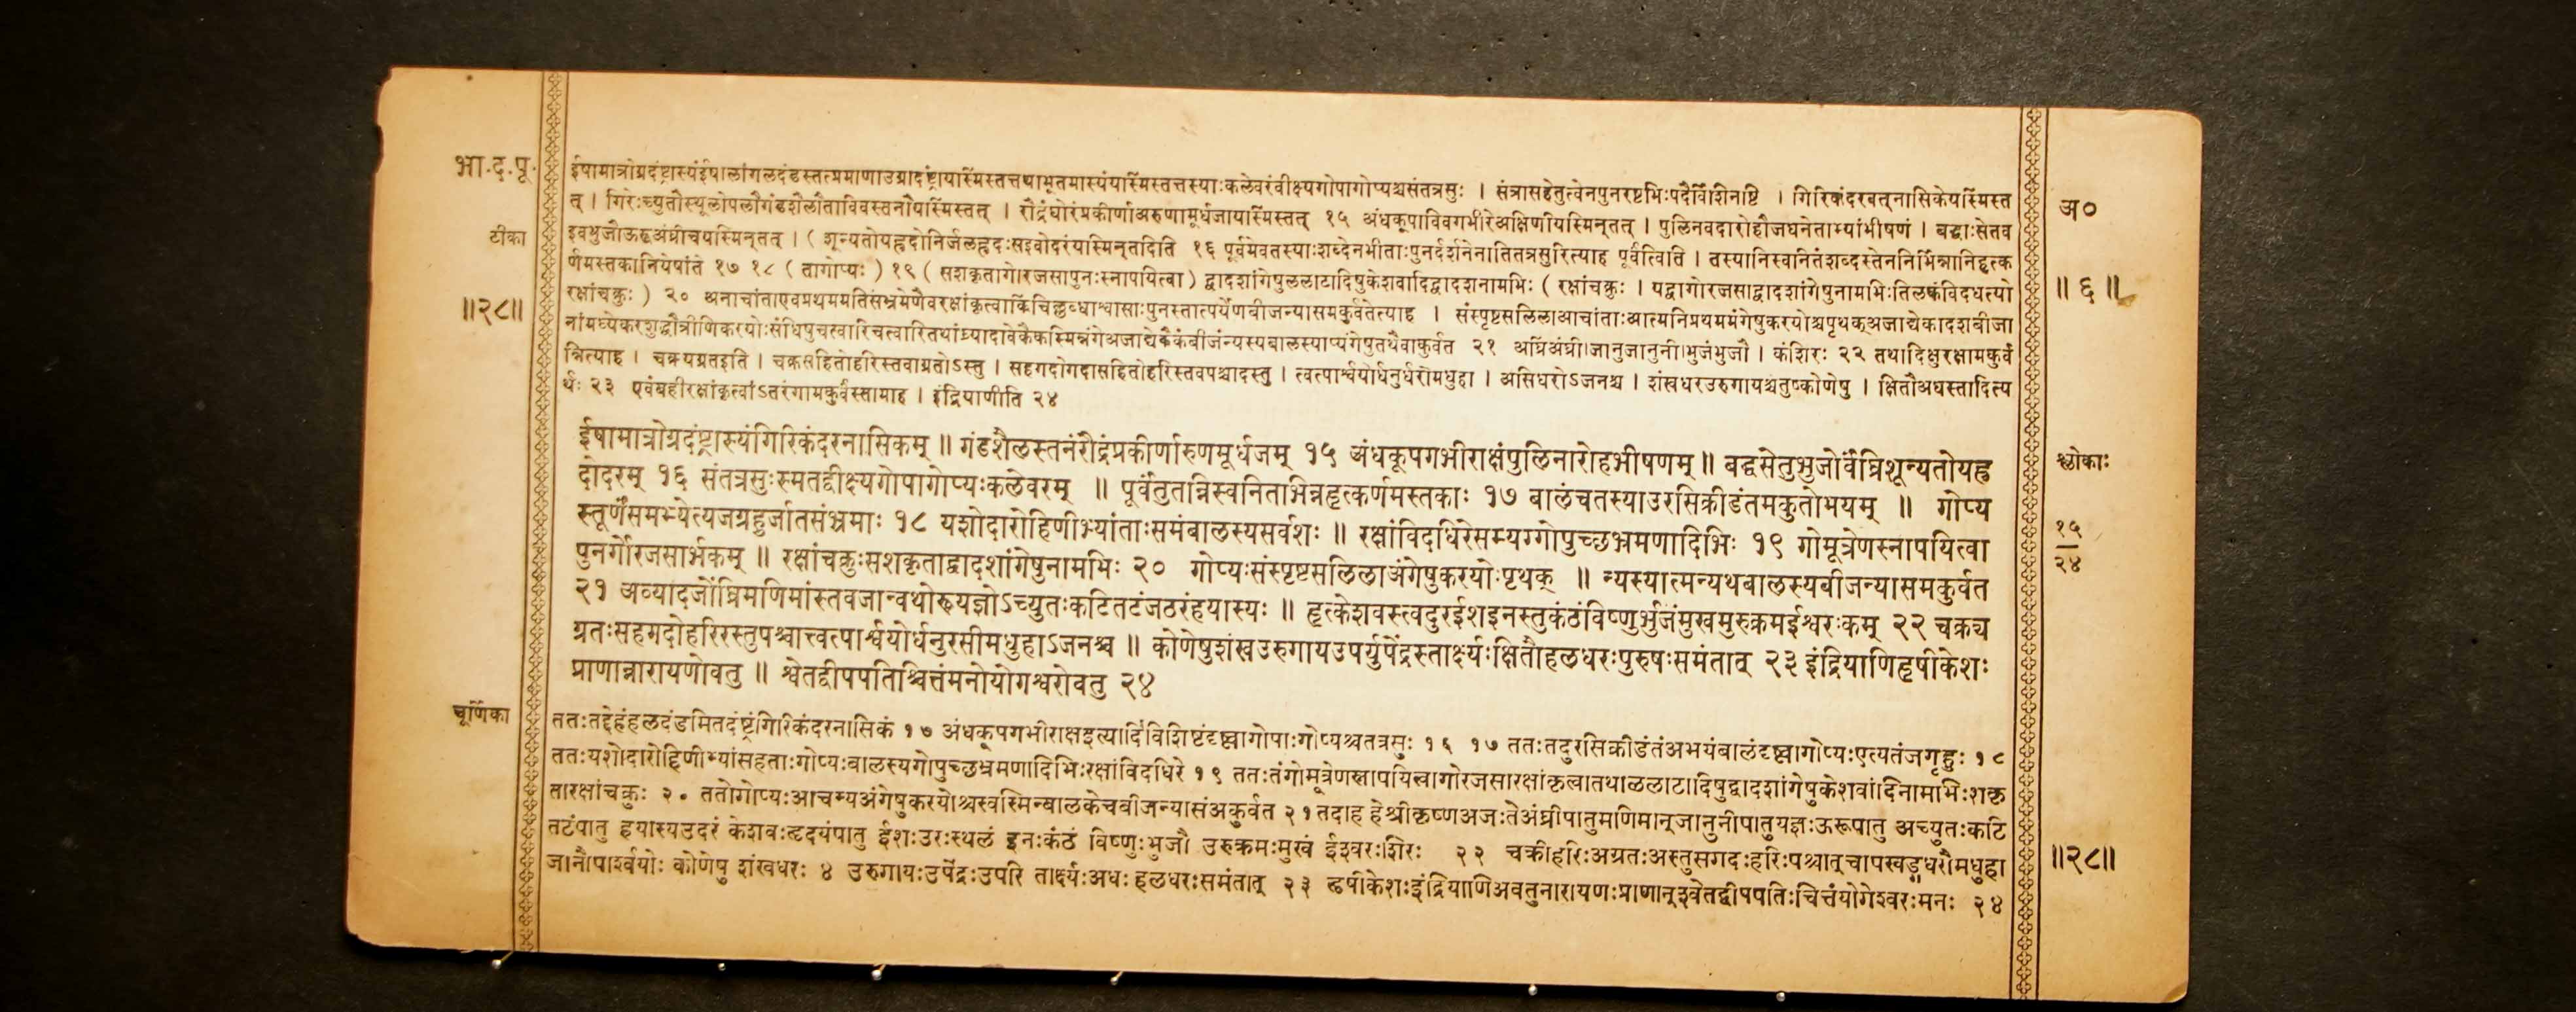 भा.द.पू.
ईषामात्रोग्रदंष्ट्रास्यंईषालांगलदंडस्तत्प्रमाणाउग्रादंष्ट्रायास्मिंस्तत्तथाभूतमास्यंयास्मिंस्तत्तस्याःकलेवरंवीक्ष्यगोपागोप्यश्चसंतत्रसुः । संत्रासहेतुत्वेनपुनरष्टभिःपदैर्विशिनष्टि । गिरिकंदरवत्नासिकेयस्मिंस्त
त् । गिरेःच्युतौस्थूलोपलौगंडशैलौताविवस्तनौयस्मिंस्तत् । रौद्रंघोरंप्रकीर्णाअरुणामूर्धजायास्मिंस्तत् १५ अंधकूपाविवगभीरेअक्षिणीयस्मिन्तत् । पुलिनवदारोहौजघनेताभ्यांभीषणं । बद्धाःसेतव
अ०
टीका
इवभुजौऊरूअंघ्रीचयस्मिन्तत् । ( शून्यतोयह्रदोनिर्जलह्रदःसइवोदरंयास्मिन्तदिति १६ पूर्वमेवतस्याःशब्देनभीताःपुनर्दर्शनेनातितत्रसुरित्याह पूर्वंत्विति । तस्यानिस्वनितंशब्दस्तेननिर्भिन्नानिहृत्क
र्णमस्तकानियेषांते १७ १८ ( तागोप्यः ) १९ ( सशकृतागोरजसापुनःस्नापयित्वा ) द्वादशांगेषुललाटादिषुकेशवादिद्वादशनामभिः ( रक्षांचक्रुः । यद्वागोरजसाद्वादशांगेषुनामभिःतिलकंविदधत्यो
॥ ६ ॥
॥२८॥
रक्षांचक्रुः ) २० अनाचांताएवप्रथममतिसंभ्रमेणैवरक्षांकृत्वाकिंचिल्लब्धाश्वासाःपुनस्तात्पर्येणबीजन्यासमकुर्वतेत्याह । संस्पृष्टसलिलाआचांताःआत्मनिप्रथममंगेषुकरयोश्चपृथक्अजाद्येकादशबीजा
नांमध्येकरशुद्धौत्रीणिकरयोःसंधिषुचत्वारिचत्वारितथांघ्र्यादावेकैकस्मिन्नंगेअजाद्येकैकंबीजंन्यस्यबालस्याप्यंगेषुतथैवाकुर्वत २१ अघ्रिंअंघ्री।जानुजानुनी।भुजंभुजौ । कंशिरः २२ तथादिक्षुरक्षामकुर्वं
न्नित्याह । चक्र्यग्रतइति । चक्रसहितोहरिस्तवाग्रतोऽस्तु । सहगदोगदासहितोहरिस्तवपश्चादस्तु । त्वत्पार्श्वयोर्धनुर्धरोमधुहा । असिधरोऽजनश्च । शंखधरउरुगायश्चतुष्कोणेषु । क्षितौअधस्तादित्य
र्थः २३ एवंबहीरक्षांकृत्वांऽतरंगामकुर्वंस्तामाह । इंद्रियाणीति २४
ईषामात्रोग्रदंष्ट्रास्यंगिरिकंदरनासिकम् ॥ गंडशैलस्तनंरौद्रंप्रकीर्णारुणमूर्धजम् १५ अंधकूपगभीराक्षंपुलिनारोहभीषणम् ॥ बद्धसेतुभुजोर्वंघ्रिशून्यतोयह्र
श्लोकाः
दोदरम् १६ संतत्रसुःस्मतद्वीक्ष्यगोपागोप्यःकलेवरम् ॥ पूर्वंतुतन्निस्वनिताभिन्नहृत्कर्णमस्तकाः १७ बालंचतस्याउरसिक्रीडंतमकुतोभयम् ॥ गोप्य
स्तूर्णंसमभ्येत्यजगृहुर्जातसंभ्रमाः १८ यशोदारोहिणीभ्यांताःसमंबालस्यसर्वशः ॥ रक्षांविदधिरेसम्यग्गोपुच्छभ्रमणादिभिः १९ गोमूत्रेणस्नापयित्वा
१५
२४
पुनर्गोरजसार्भकम् ॥ रक्षांचक्रुःसशकृताद्वादशांगेषुनामभिः २० गोप्यःसंस्पृष्टसलिलाअंगेषुकरयोःपृथक् ॥ न्यस्यात्मन्यथबालस्यबीजन्यासमकुर्वत
२१ अव्यादजोंघ्रिमणिमांस्तवजान्वथोरूयज्ञोऽच्युतःकटितटंजठरंहयास्यः ॥ हृत्केशवस्त्वदुरईशइनस्तुकंठंविष्णुर्भुजंमुखमुरुक्रमईश्वरःकम् २२ चक्र्य
ग्रतःसहगदोहरिरस्तुपश्चात्त्वत्पार्श्वयोर्धनुरसीमधुहाऽजनश्च ॥ कोणेषुशंखउरुगायउपर्युपेंद्रस्तार्क्ष्यःक्षितौहलधरःपुरुषःसमंतात् २३ इंद्रियाणिहृषीकेशः
प्राणान्नारायणोवतु ॥ श्वेतद्वीपपतिश्चित्तंमनोयोगश्वरोवतु २४
चूर्णिका
ततःतद्देहंहलदंडमितदंष्ट्रंगिरिकंदरनासिकं १७ अंधकूपगभीराक्षइत्यादिविशिष्टंदृष्ट्वागोपाःगोप्यश्चतत्रसुः १६ १७ ततःतदुरसिक्रीडंतंअभयंबालंदृष्ट्वागोप्यःएत्यतंजगृहुः १८
ततःयशोदारोहिणीभ्यांसहताःगोप्यःबालस्यगोपुच्छभ्रमणादिभिःरक्षांविदधिरे १९ ततःतंगोमूत्रेणस्नापयित्वागोरजसारक्षांकृत्वातथाललाटादिषुद्वादशांगेषुकेशवादिनामाभिःशकृ
तारक्षांचक्रुः २० ततोगोप्यःआचम्यअंगेषुकरयोश्चस्वस्मिन्बालकेचबीजन्यासंअकुर्वत २१ तदाह हेश्रीकृष्णअजःतेअंघ्रीपातुमणिमान्जानुनीपातुयज्ञःऊरूपातु अच्युतःकटि
तटंपातु हयास्यउदरं केशवःहृदयंपातु ईशःउरःस्थलं इनःकंठं विष्णुःभुजौ उरुक्रमःमुखं ईश्वरःशिरः २२ चक्रीहरिःअग्रतःअस्तुसगदःहरिःपश्चात्चापखड्गधरौमधुहा
॥२८॥
जानौपार्श्वयोः कोणेषु शंखधरः ४ उरुगायःउपेंद्रःउपरि तार्क्ष्यःअधः हलधरःसमंतात् २३ हृषीकेशःइंद्रियाणिअवतुनारायणःप्राणान्श्वेतद्वीपपतिःचित्तंयोगेश्वरःमनः २४